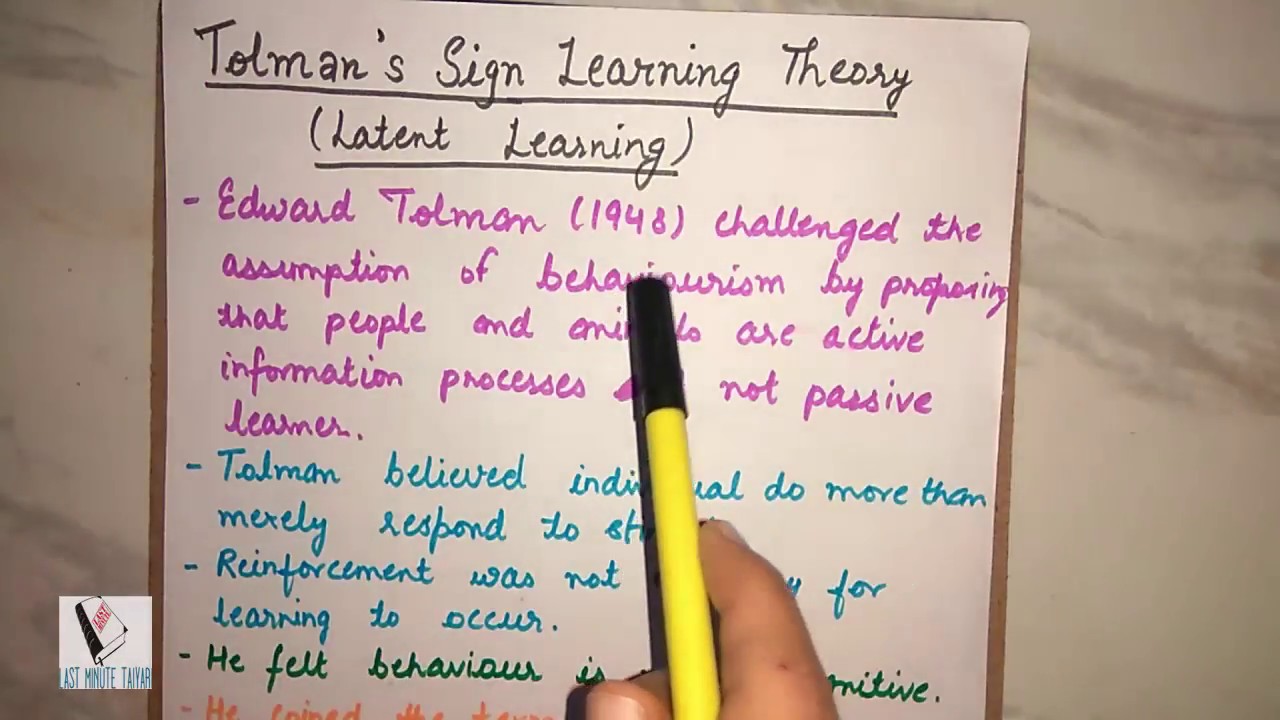 Tolman's Sign Learning Theory
(Latent Learning)
- Edward Tolman (1948) challenged the
assumption of behaviourism by proposing
that people and are active
information processes not passive
learner.
- Tolman believed do more than
merely respond to
- Reinforcement was not for
learning to occur.
- He felt behaviour is
- He coined the term
LAST MINUTE
LAST MINUTE TAIYARI